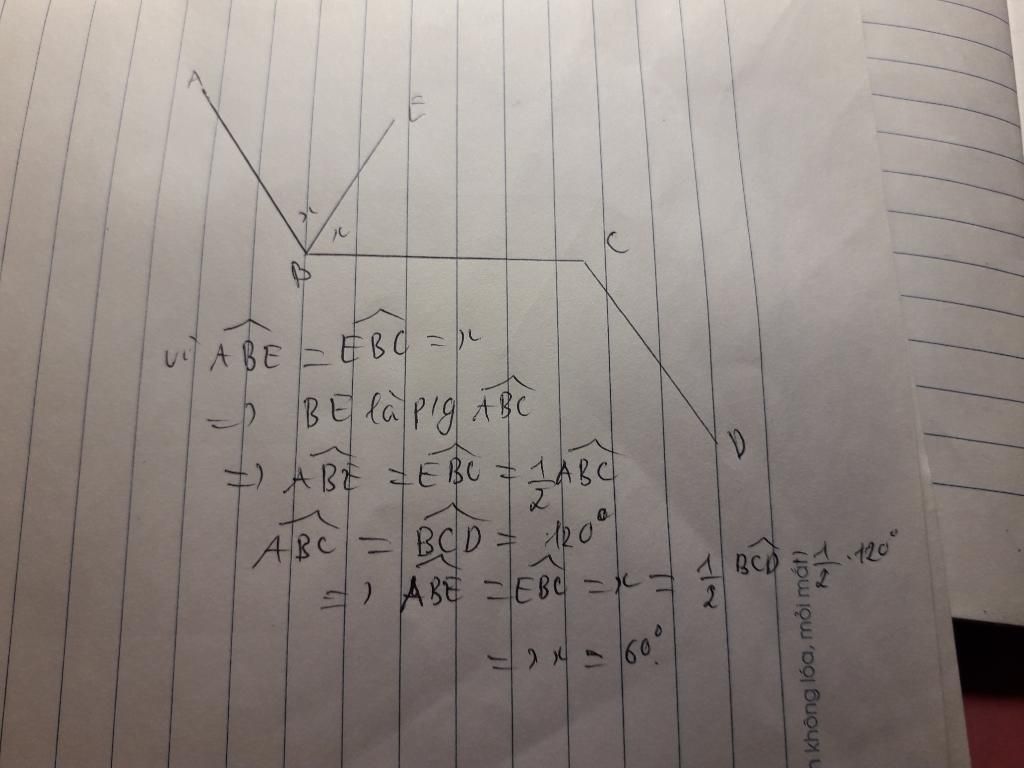 A
E
x
x
B
C
D
vì $\widehat{ABE} = \widehat{EBC} = x$
=> BE là p/g $\widehat{ABC}$
=> $\widehat{ABE} = \widehat{EBC} = \frac{1}{2} \widehat{ABC}$
$\widehat{ABC} = \widehat{BCD} = 120^0$
=> $\widehat{ABE} = \widehat{EBC} = x = \frac{1}{2} \widehat{BCD} \frac{1}{2} . 120^0$
=> x = 60^0.
không lóa, mỏi mắt)